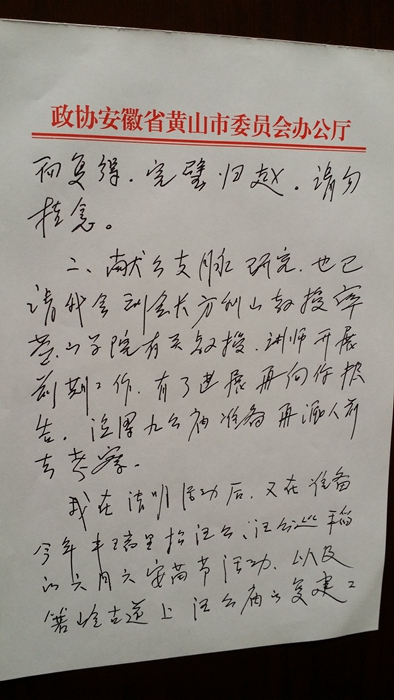 政协安徽省黄山市委员会办公厅
而复得，完璧归赵。请勿
挂念。
二、献公支脉研究，也已
请我会副会长方利山教授率
黄山学院有关教授、讲师开展
前期工作，有了进展再向你报
告。汪满九公庙准备再派人前
去考察。
我在清明活动后，又在准备
今年丰瑞里抬汪公、汪公巡稻
的六月六安苗节活动，以及
箬岭古道上汪公庙的复建工